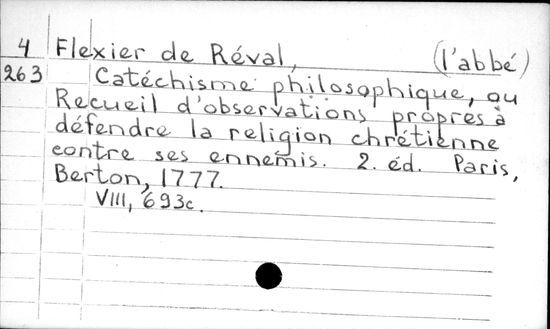 4 Flexier de Réval, (l'abbé)
263 Catéchisme philosophique, ou
Recueil d'observations propres à
défendre la religion chrétienne
contre ses ennemis. 2. éd. Paris,
Berton, 1777.
VIII, 693c.